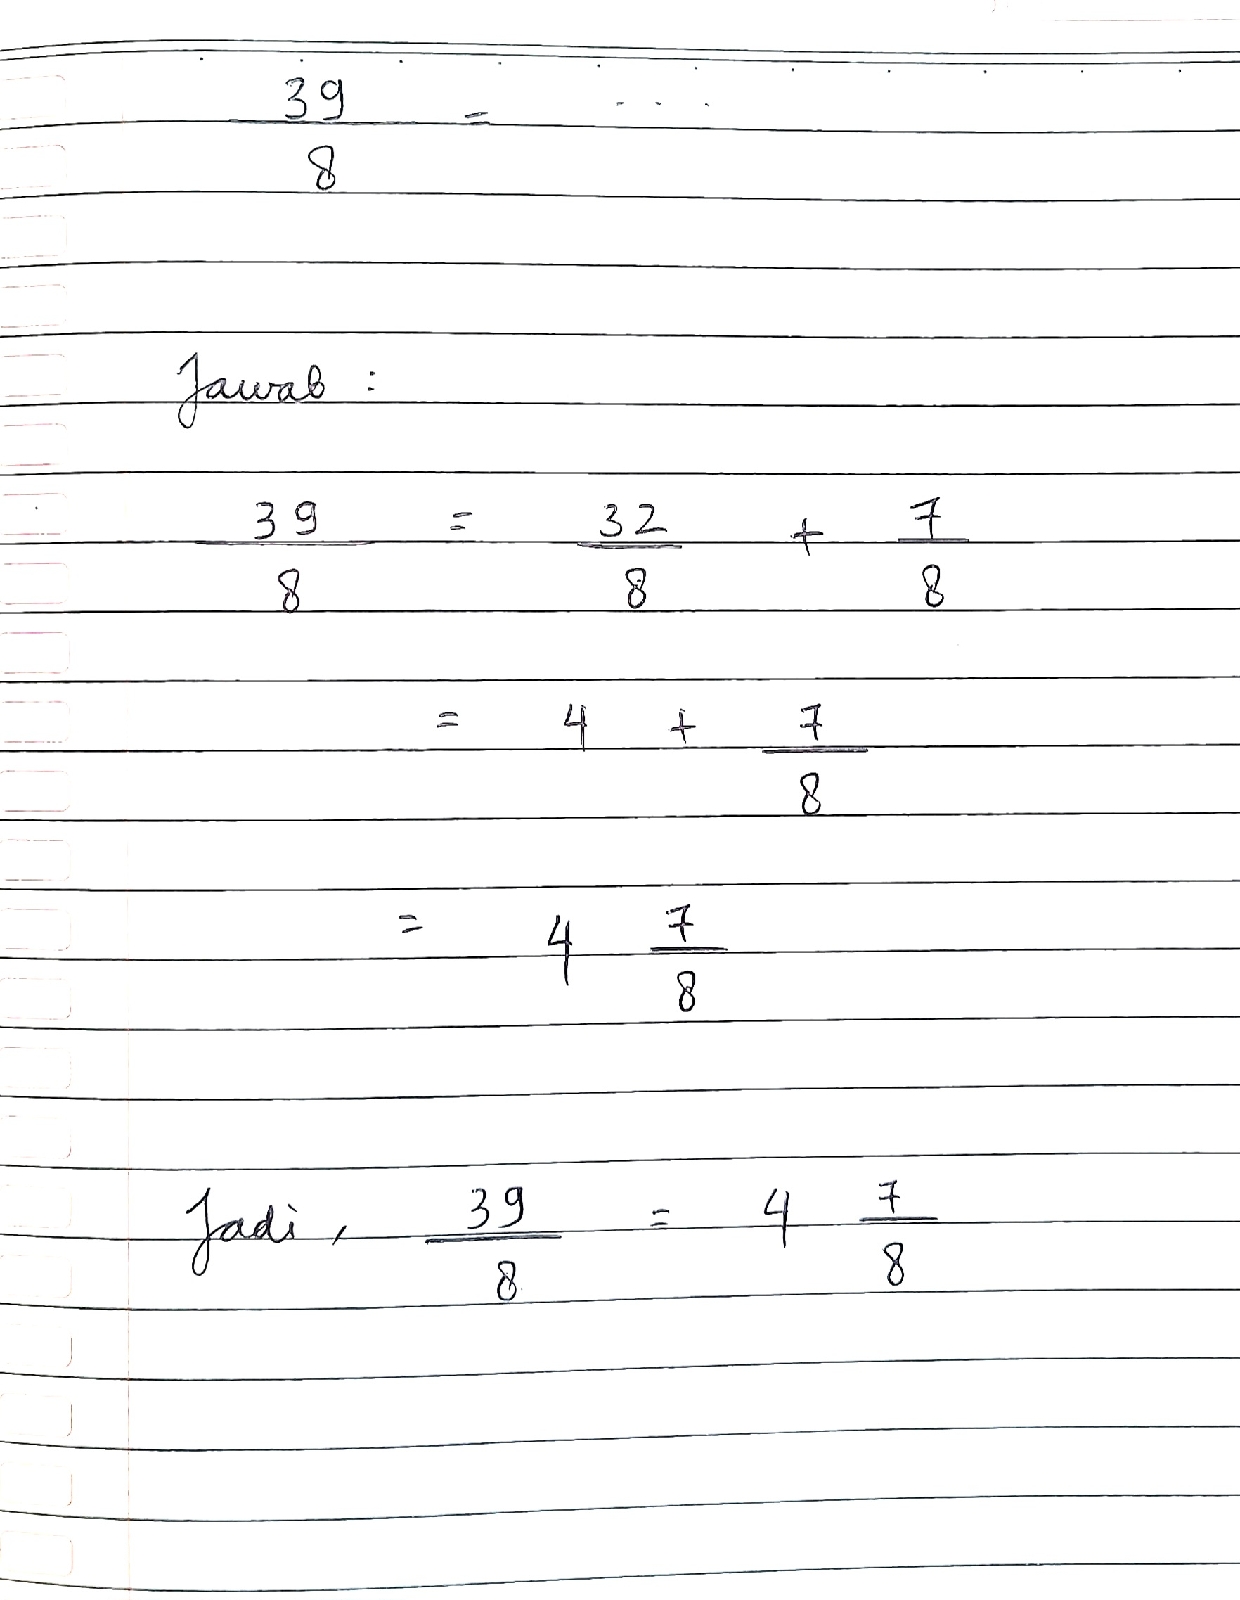 39/8 = ...
Jawab :
39/8 = 32/8 + 7/8
= 4 + 7/8
= 4 7/8
Jadi, 39/8 = 4 7/8